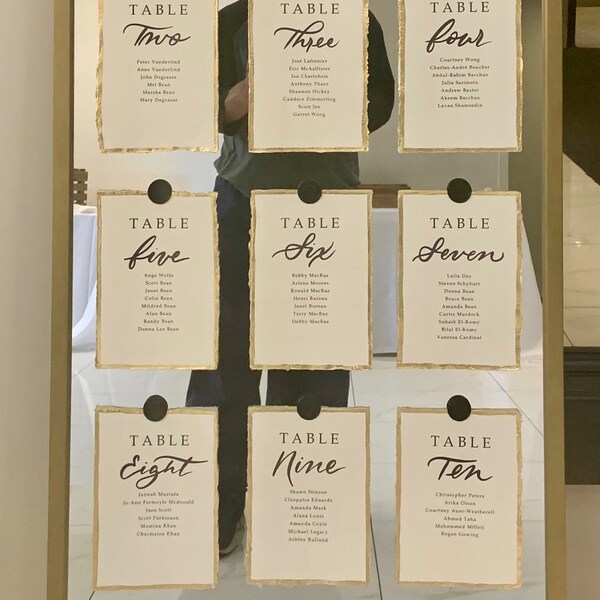 TABLE
Two
Peter Vanderlind
Anne Vanderlind
John Degrasse
Mel Bean
Martha Bean
Mary Degrasse
TABLE
Three
José Lafrenier
Eric McAllister
Ian Charlebois
Anthony Tharn
Shannon Hickey
Candace Zimmerling
Scott Jen
Garret Wong
TABLE
four
Courtney Wong
Charles-Andre Boucher
Abdul-Rahim Bacchus
Julia Sarimola
Andrew Baxter
Akeem Bacchus
Lavan Shamsedin
TABLE
five
Ange Wolfe
Scott Bean
Janet Bean
Colin Bean
Mildred Bean
Alan Bean
Randy Bean
Donna Lee Bean
TABLE
Six
Bobby MacRae
Arlene Moores
Ronald MacRae
Henri Butona
Janet Butona
Terry MacRae
Debby MacRae
TABLE
Seven
Leila Day
Steven Schyburt
Donna Bean
Bruce Bean
Amanda Bean
Curtis Murdock
Suhaib El-Komy
Bilal El-Komy
Vanessa Cardinal
TABLE
Eight
Jannah Mustafa
Jo-Ann Formoyle Mcdonald
Jane Scott
Scott Parkinson
Momina Khan
Charmaine Khan
TABLE
Nine
Shawn Stinson
Cleopatra Eduardo
Amanda Mark
Alana Louis
Amanda Coyle
Michael Legacy
Ashley Rolland
TABLE
Ten
Christopher Peters
Arika Olson
Courtney Auer-Weatherell
Ahmed Taha
Mohammed Milloii
Regan Gowing